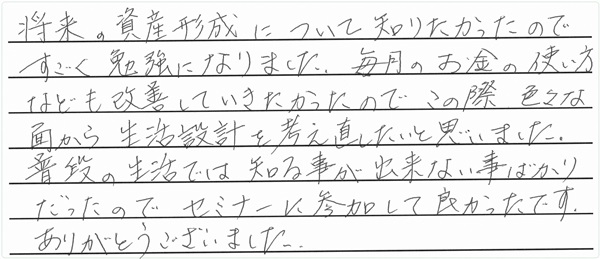 将来の資産形成について知りたかったので
すごく勉強になりました。毎月のお金の使い方
なども改善していきたかったのでこの際色々な
面から生活設計を考え直したいと思いました。
普段の生活では知る事が出来ない事ばかり
だったのでセミナーに参加して良かったです。
ありがとうございました。